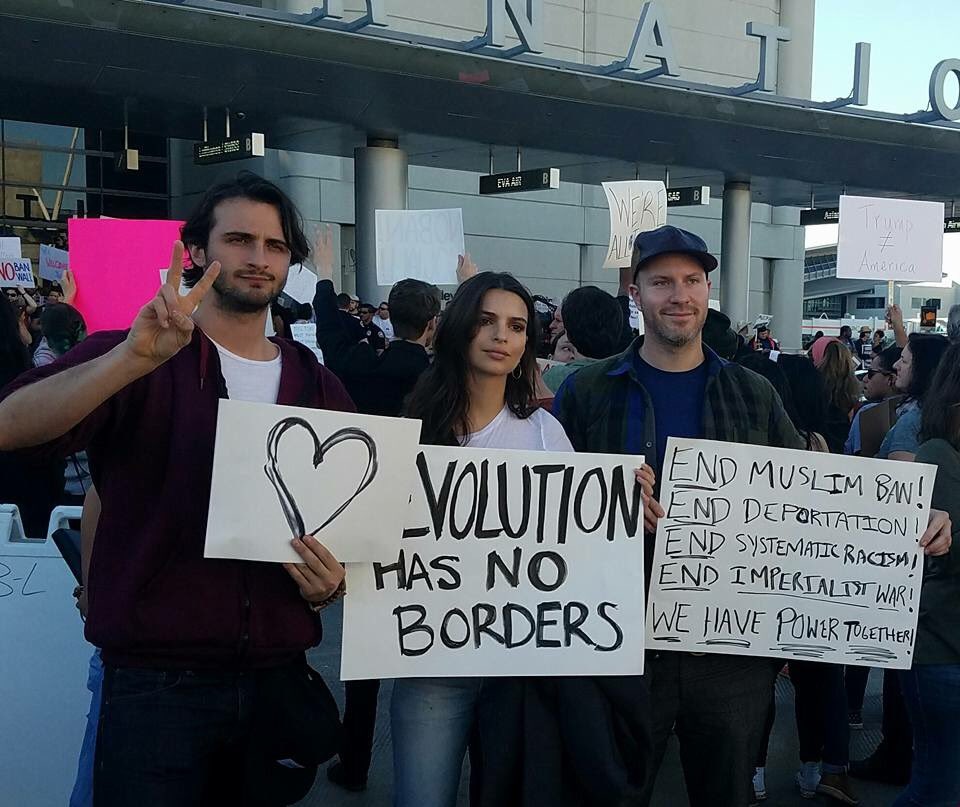 NATIO
Lufthansa/Swiss B
EVA AIR
SAS B
WE'RE
ALL
Trump
≠
America
NO BAN
WALL
EVOLUTION
HAS NO
BORDERS
END MUSLIM BAN!
END DEPORTATION!
END SYSTEMATIC RACISM!
END IMPERIALIST WAR!
WE HAVE POWER TOGETHER!
B-L